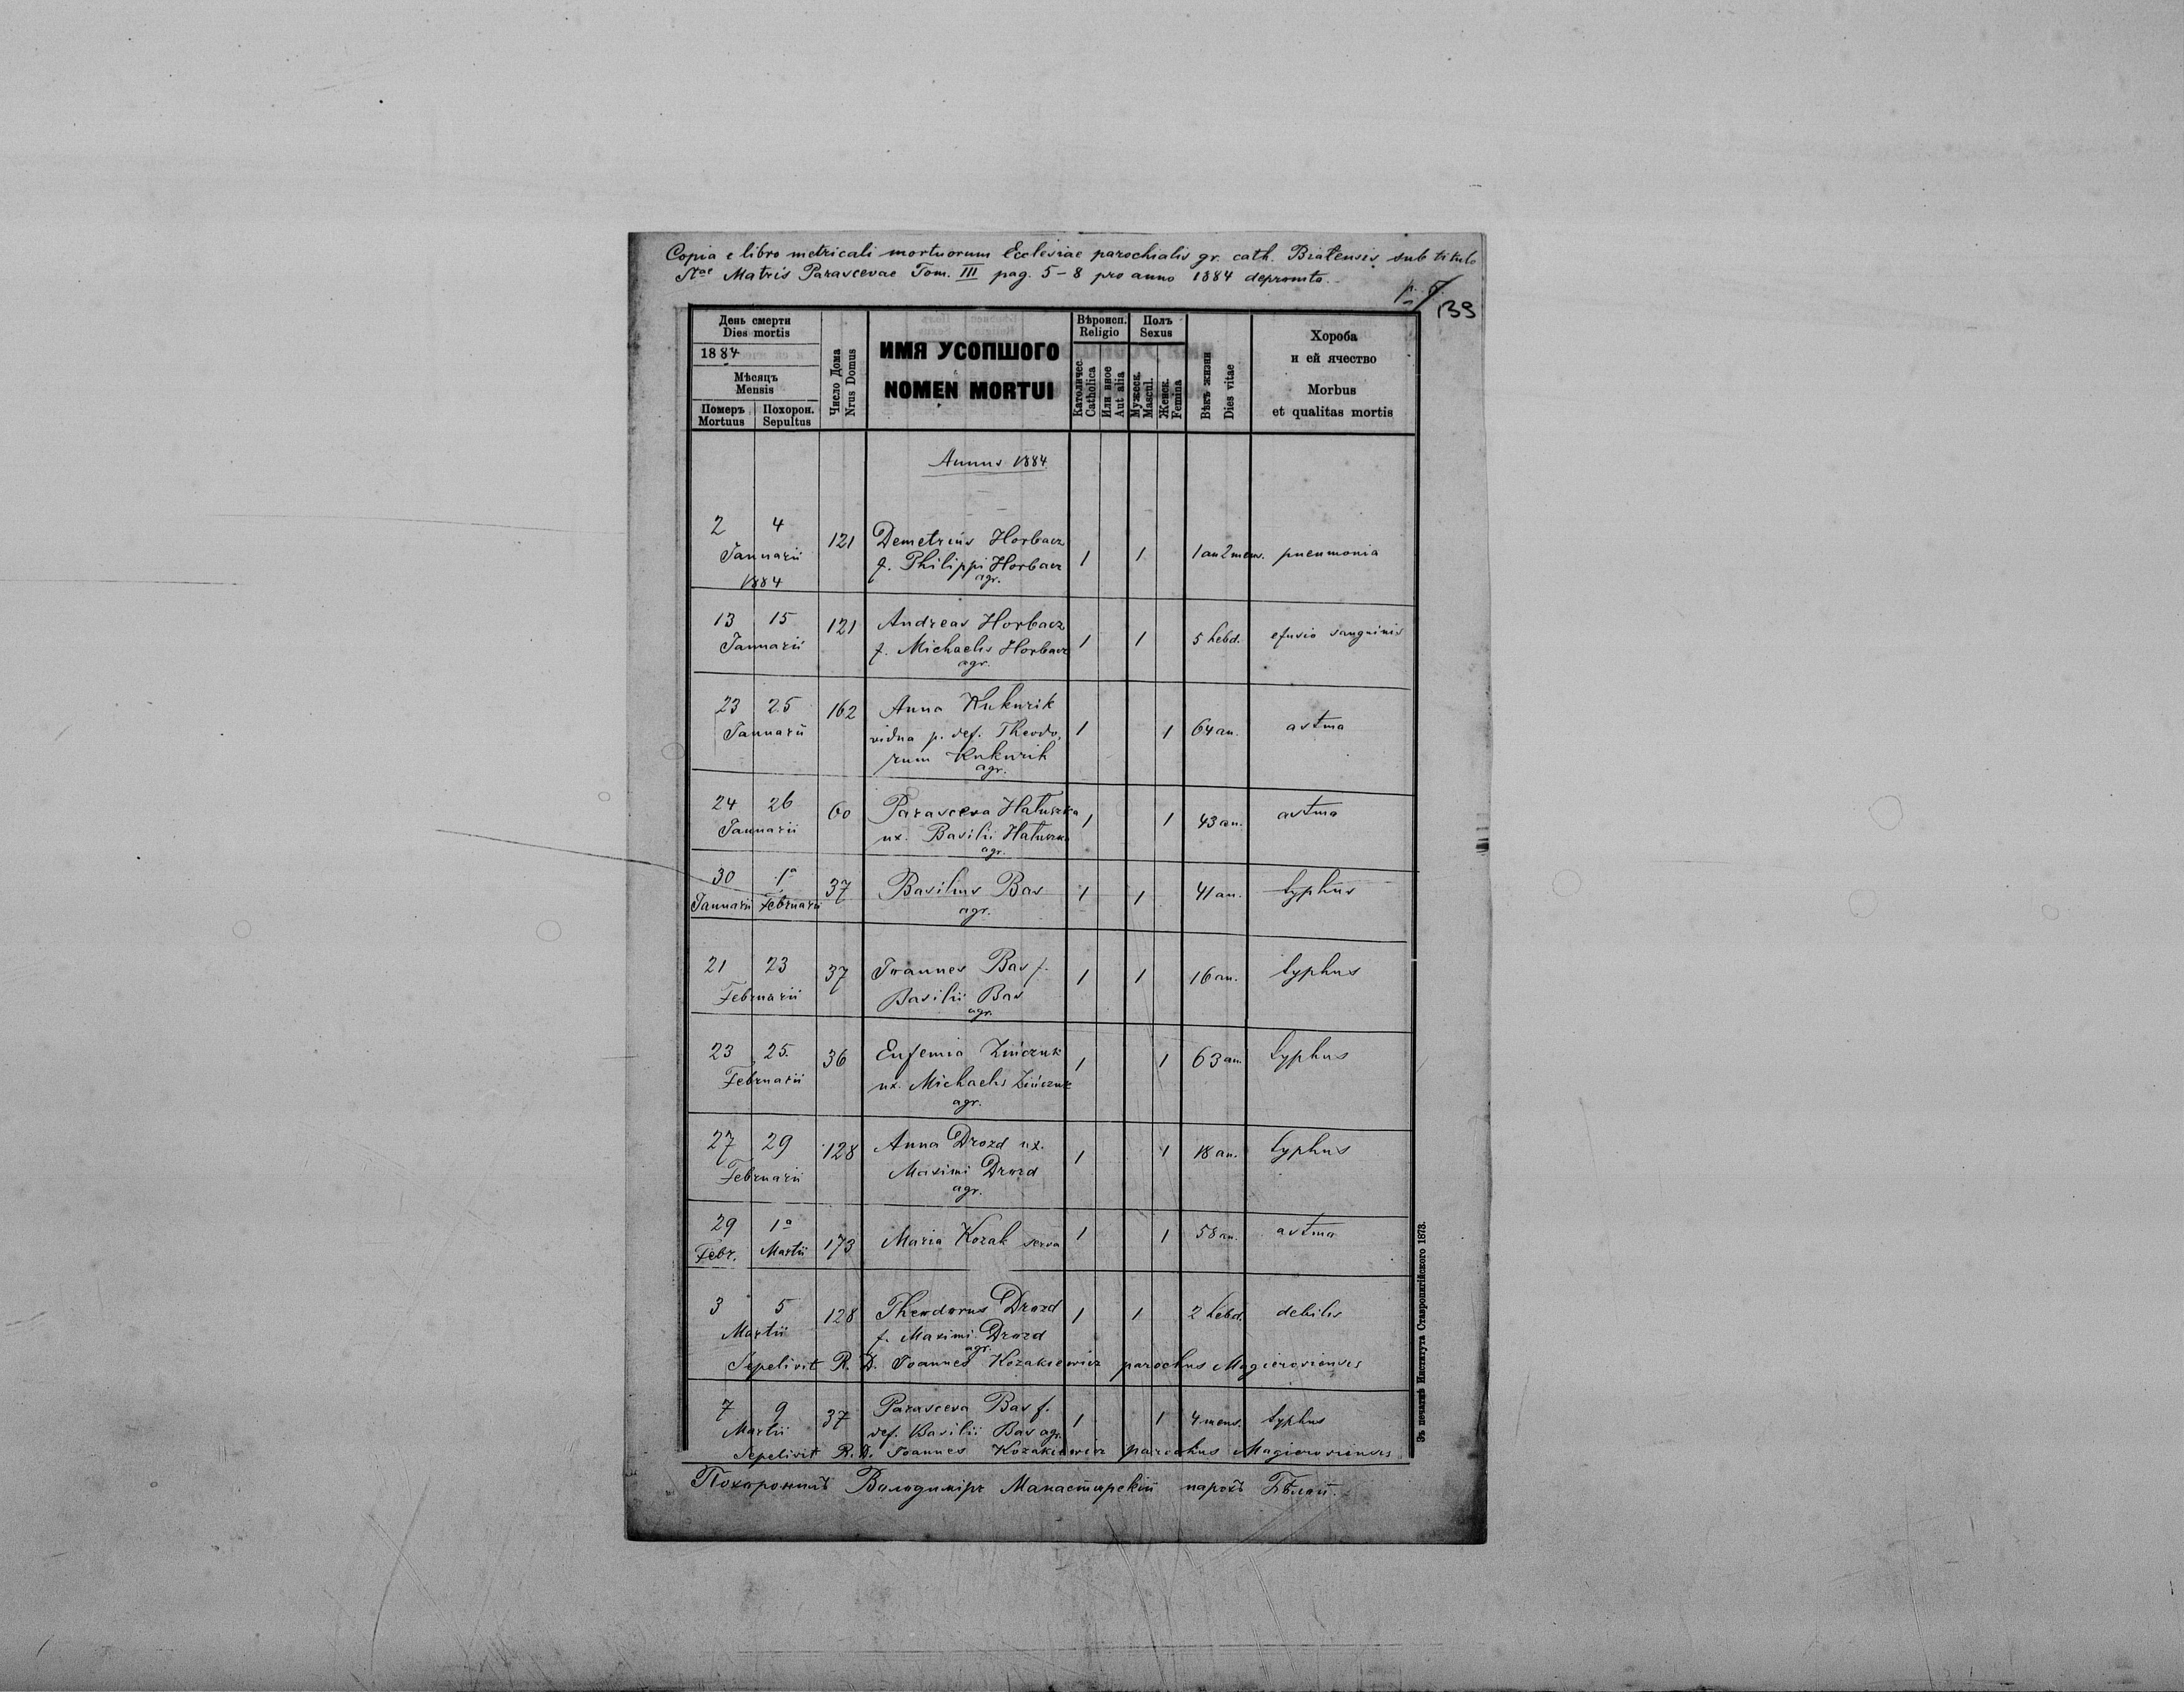 Copia e libro metricali mortuorum Ecclesiae parochialis gr. cath. Białensis sub titulo
Stae Matris Parascevae Tom. III pag. 5-8 pro anno 1884 depromta.
139
День смерти
Dies mortis
1884
Мѣсяцъ
Mensis
Померъ
Mortuus
Похорон.
Sepultus
Число Дома
Nrus Domus
ИМЯ УСОПШОГО
NOMEN MORTUI
Вѣроисп.
Religio
Католичес.
Catholica
Или иное
Aut alia
Полъ
Sexus
Мужеск.
Mascul.
Женск.
Femina
Вѣкъ жизни
Dies vitae
Хороба
и ей ячество
Morbus
et qualitas mortis
Annus 1884
2 4 121 Demetrius Horbacz
Januarii f. Philippi Horbacz 1 1 1 an 2 mens. pneumonia
1884 agr.
13 15 121 Andreas Horbacz
Januarii f. Michaelis Horbacz 1 1 5 hebd. efusio sanguinis
agr.
23 25 162 Anna Kukurik
Januarii vidua p. def. Theodo- 1 1 64 an. astma
rum Kukurik
agr.
24 26 60 Parasceva Hałuszka
Januarii ux. Basilii Hałuszka 1 1 43 an. astma
agr.
30 1a 37 Basilius Bas 1 1 41 an. typhus
Januarii Februarii agr.
21 23 37 Joannes Bas f. 1 1 16 an. typhus
Februarii Basilii Bas
agr.
23 25. 36 Eufemia Zińczuk 1 1 63 an. typhus
Februarii ux. Michaelis Zińczuk
agr.
27 29 128 Anna Drozd ux. 1 1 18 an. typhus
Februarii Maximi Drozd
agr.
29 1a 173 Maria Kozak serva 1 1 58 an. astma
Febr. Martii
3 5 128 Theodorus Drozd 1 1 2 hebd. debilis
Martii f. Maximi Drozd
agr.
Sepelivit R. D. Joannes Kozakiewicz parochus Magieroviensis
7 9 37 Parasceva Bas f. 1 1 4 mens. typhus
Martii def. Basilii Bas agr.
Sepelivit R. D. Joannes Kozakiewicz parochus Magieroviensis
Похоронилъ Володимiръ Манастирскiй парохъ Бѣлои.
Зъ печатнѣ Института Ставропигійского 1873.